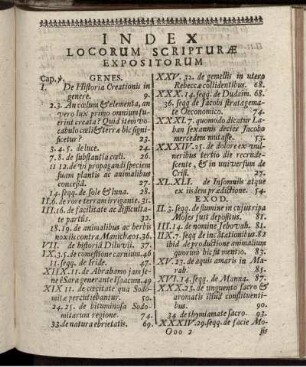 INDEX
LOCORUM SCRIPTURÆ
EXPOSITORUM
Cap. ℣. GENES.
I. De Historia Creationis in
genere. 9.
2.3. An cœlum & elementa, an
verò lux primò omnium fu-
erint creata? Quid item vo-
cabulo cœli & terræ hic sig-
nificetur? 2.
3.4.5. de luce. 24.
7.8. de substantia cœli. 26.
11 12. de vi propagandi speciem
suam plantis ac animalibus
concessâ. 27.
14. seqq. de sole & luna. 28.
II.6. de rore terram irrigante. 31.
III.16. de facilitate ac difficulta-
te partûs. 32.
18.19. de animalibus ac herbis
noxiis contra Manichæos. 36.
VII. de historiâ Diluvii. 37.
IX.3.5. de comestione carnium. 46
11. seqq. de Iride. 47.
XIIX.11. de Abrahamo jam se-
ne & Sara generante Isaacum. 49
XIX 11. de cæcitate quâ Sodo-
mitæ percutiebantur. 50.
24.25. de bituminosa Sodo-
mitarum regione. 74.
33. de natura ebrietatis. 69.
XXV. 22. de gemellis in utero
Rebeccæ collidentibus. 68.
XXX.14. seqq. de Dudaim. 68.
36. seqq de Jacobi stratagema-
te Oeconomico. 74.
XXXI.7. quomodo dicatur La-
ban sex annis decies Jacobo
mercedem mutasse. 73.
XXXIV 25. de dolore ex vul-
neribus tertio die recrude-
scente, & in universum de
Crisi. 27.
XL.XLI. de Insomniis atque
ex iisdem prædictione. 54.
EXOD.
II.3. seqq. de flumine in cujus ripa
Moses fuit depositus. 81.
III.14. de nomine Jehovah. 81.
IIX.7 seqq de incantationibus. 82
ibid de productione animalium
quorum hic fit mentio. 83.
XV.23. de aquis amaris in Ma-
rah. 85.
XVI.14. seqq. de Manna. 87.
XXX.23. de unguento sacro &
aromatis illud constituenti-
bus. 90.
34 de thymiamate sacro. 93.
XXXIV.29. seqq. de facie Mo-
Ooo 2